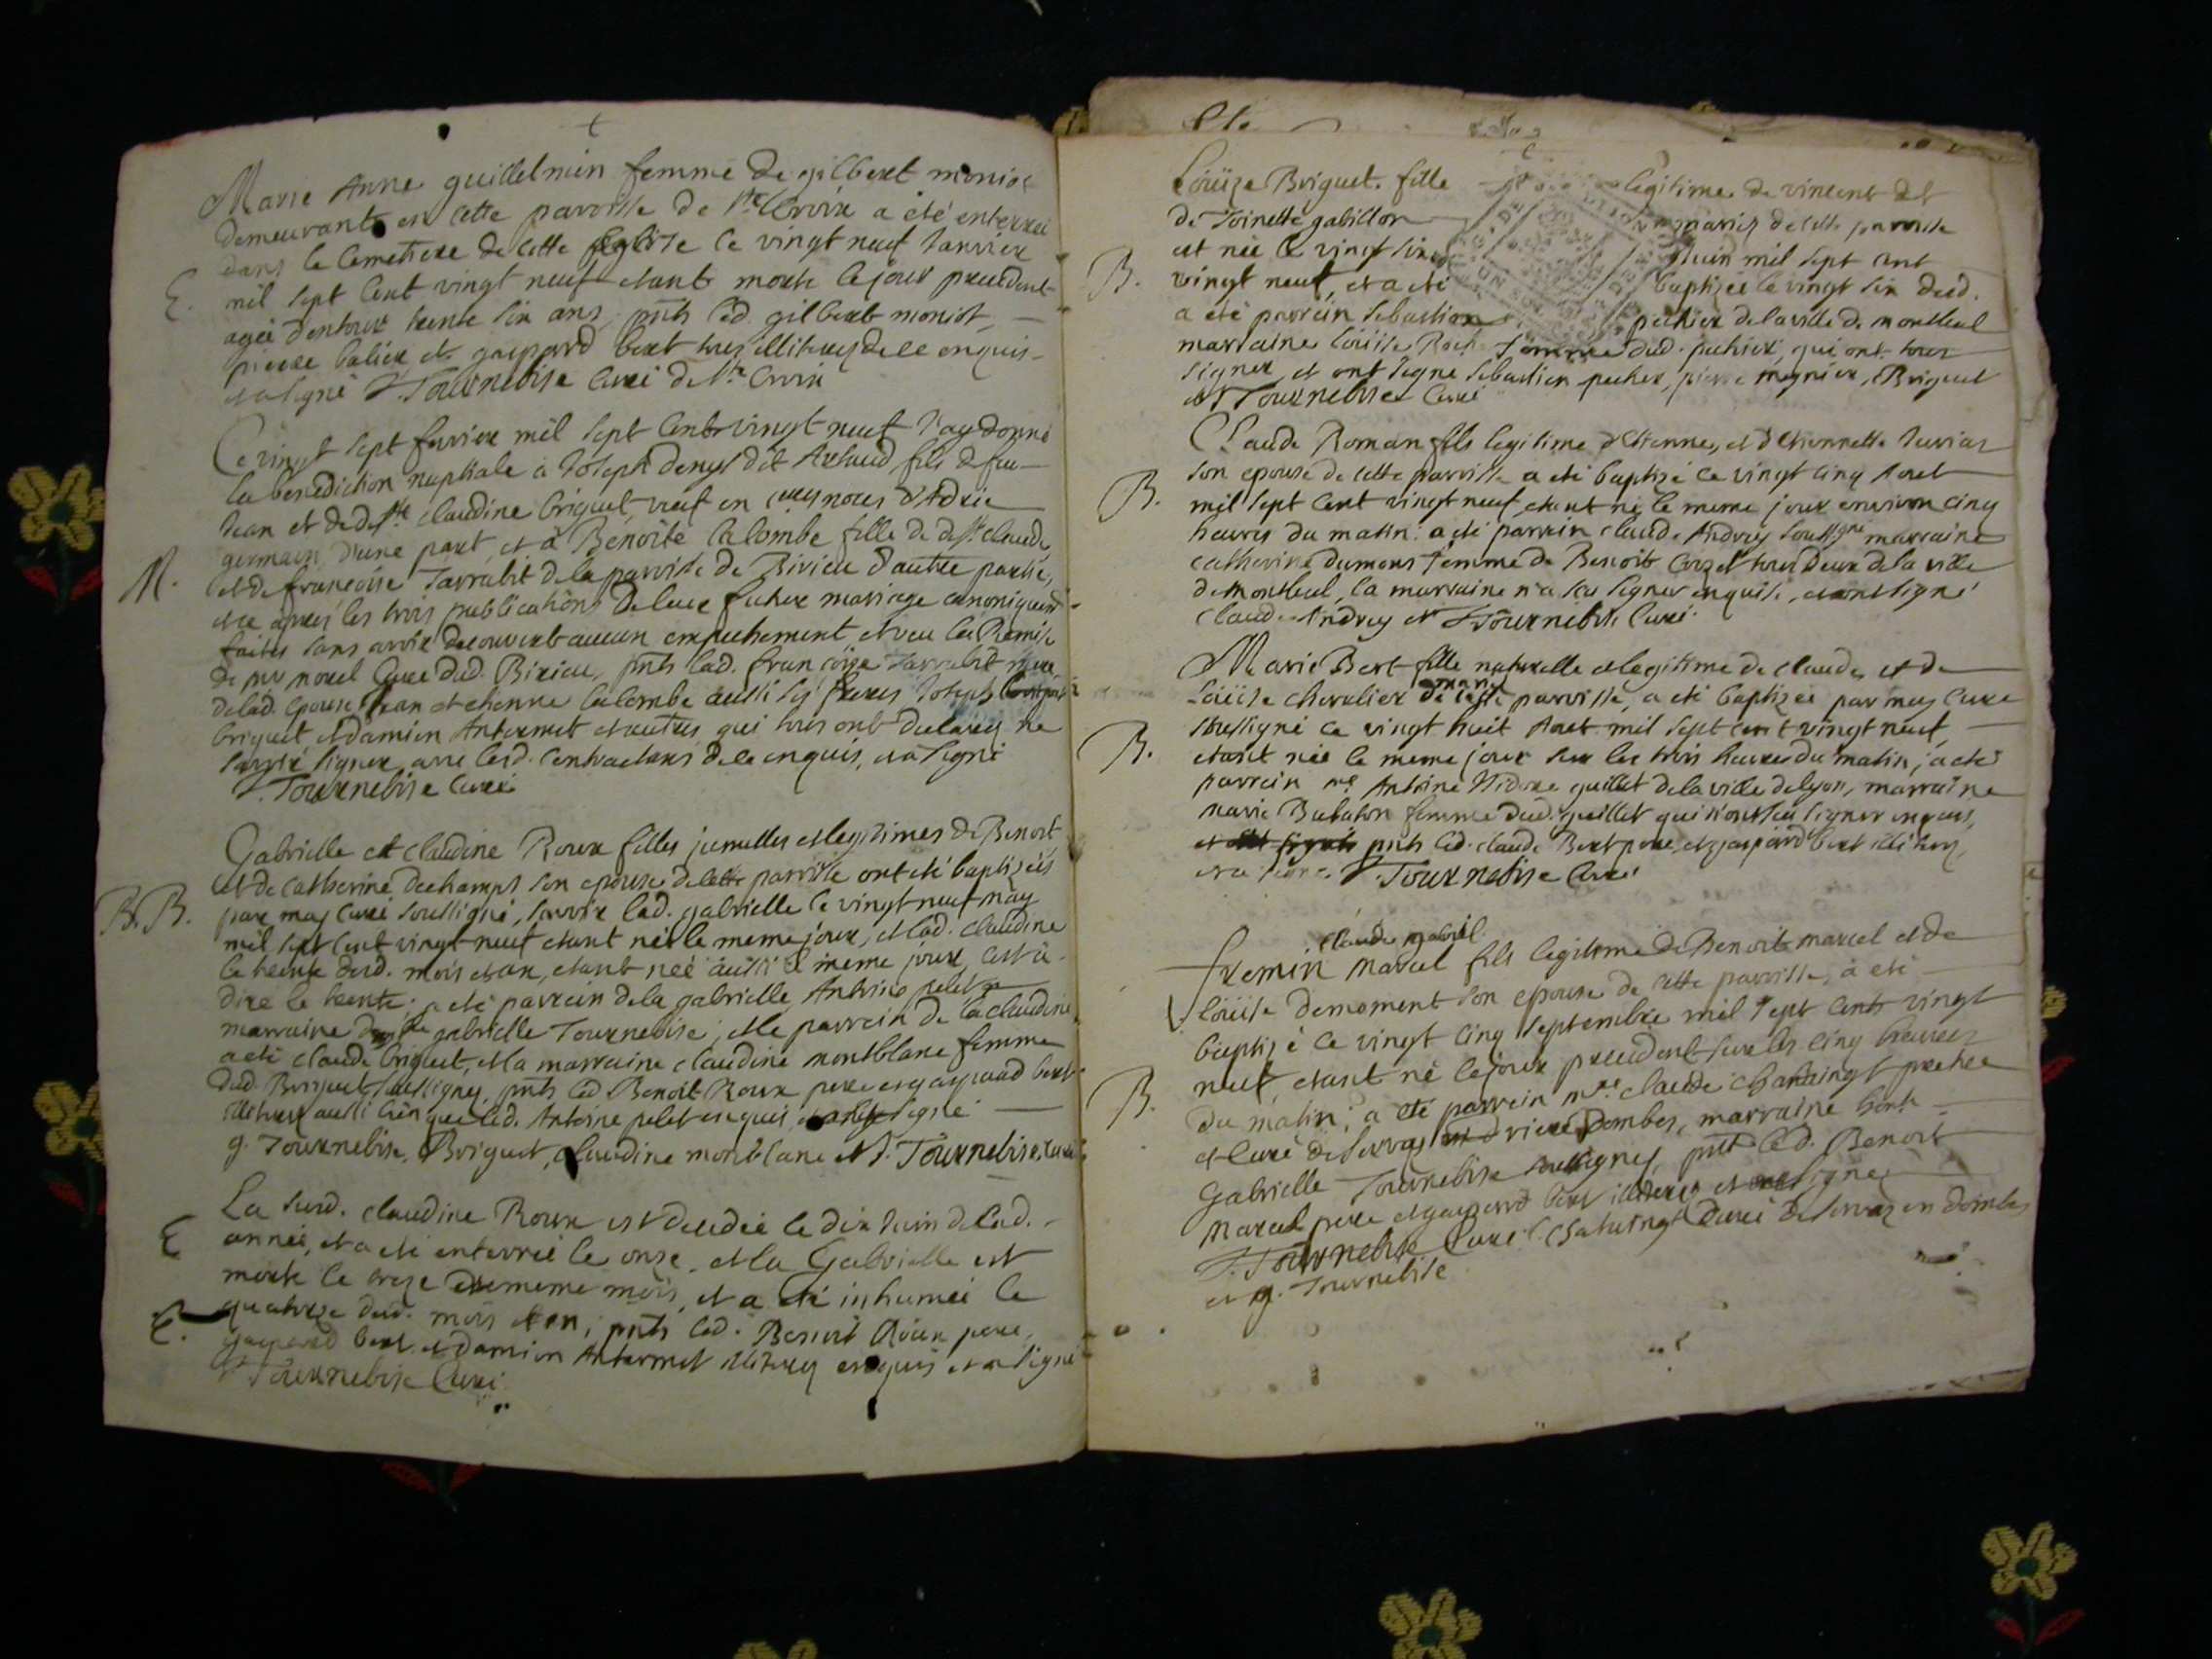 Marie Anne guillelmin femme de gilbert moniot
demeurants en cette parroisse de Ste Croix a été enterrée
dans le Cemetiere de cette Eglise le vingt neuf Janvier
E. mil sept cent vingt neuf etant morte le jour precedent
agée dentour trente six ans, pnts led. gilbert moniot,
pierre balier, et gaspard bert tous illiterez de ce enquis
et a signé Tournebise Curé de Ste Croix
Ce vingt sept fevrier mil sept cent vingt neuf J'ay donné
la benediction nuptiale à Joseph denys dit Artaud fils de feu
Jean et de claudine briguet veuf en noces
germain d'une part, et à Benoite Lacombe fille de claude
M. et de francoise Jarrabit de la parroisse de Birieu d'autre partie,
et ce apres les trois publications de leur futur mariage canoniquemt
faites sans avoir decouvert aucun empechement et veu la Remise
de morel Curé dud. Birieu, pnts lad. francoise Jarrabit mere
delad. Epouse, Jean et etienne lacombe aussi ses freres Joseph
briguet et damien Antermet et autres qui tous ont declarez ne
savoir signer avec lesd. Contractans de ce enquis, et a signé
Tournebise Curé
Gabrielle et claudine Roux filles jumelles et legitimes de Benoit
et de catherine dechamps son epouse de cette parroisse ont eté baptizées
B. B. par moy Curé soussigné, savoir lad. gabrielle le vingt neuf may
mil sept cent vingt neuf etant née le meme jour, et lad. claudine
le trente dud. mois et an, etant née aussi le meme jour, cest à
dire le trente; a eté parrein de la gabrielle Antoine pelet
marraine gabrielle Tournebise, et le parrein de la claudine
a eté claude briguet, et la marraine claudine montblanc femme
dud. Briguet soussignez, pnts led Benoit Roux pere et gaspard bert
illiterez aussi bien que led. Antoine pelet enquis signé
g. Tournebise, Briguet, claudine montblanc et Tournebise, Curé
La susd. claudine Roux est decedée le dix Juin de lad.
E annee, et a eté enterrée le onze, et la Gabrielle est
morte le treze du meme mois, et a eté inhumée le
E. quatorze dud. mois et an, pnts led. Benoit Roux pere,
gaspard bert et damien Antermet illiterez enquis et a signé
Tournebise Curé
Loüize Briguet fille legitime de vincent et
de Toinette gabillon mariez de cette parroisse
est née le vingt six Juin mil sept cent
B. vingt neuf, et a eté baptizée le vingt six dud.
a eté parrein sebastien pechier de la ville de montluel
marraine Loüise femme dud. pechier, qui ont tous
signez, et ont signé sebastien pecher, pierre meynier, Briguet
et Tournebise Curé
Claude Roman fils legitime d'Etienne, et d'Etiennette
son epouse de cette parroisse a eté baptizé ce vingt cinq Aout
B. mil sept cent vingt neuf, etant né le meme jour environ cinq
heures du matin: a eté parrein claude Andrey soussigné marraine
catherine dumons femme de Benoit tous deux de la ville
de Montluel, la marraine n'a sçu signer enquise, et ont signé
Claude Andrey et Tournebise Curé.
Marie Bert fille naturelle et legitime de claude, et de
Loüise chevalier de cette parroisse, a eté baptizée par moy Curé
soussigné ce vingt huit Aout mil sept cent vingt neuf
B. etant née le meme jour sur les trois heures du matin; a eté
parrein Antoine guillet de la ville de lyon, marraine
marie Babaton femme dud. guillet qui n'ont sçu signer enquis,
pnts led. claude Bert pere, et gaspard bert illiterez,
et a signé. Tournebise Curé
claude gabriel
fremin marcel fils legitime de Benoit marcel et de
Loüise demoment son epouse de cette parroisse, à eté
baptizé ce vingt cinq septembre mil sept cents vingt
neuf, etant né le jour precedent sur les cinq heures
B. du matin; a eté parrein claude chataingt pretre
et Curé de servas dombes, marraine
Gabrielle Tournebise soussignez, pnts led. Benoit
marcel pere et gaspard bert illiterez et signez
Tournebise Curé Curé de servas en dombes
et g. Tournebise